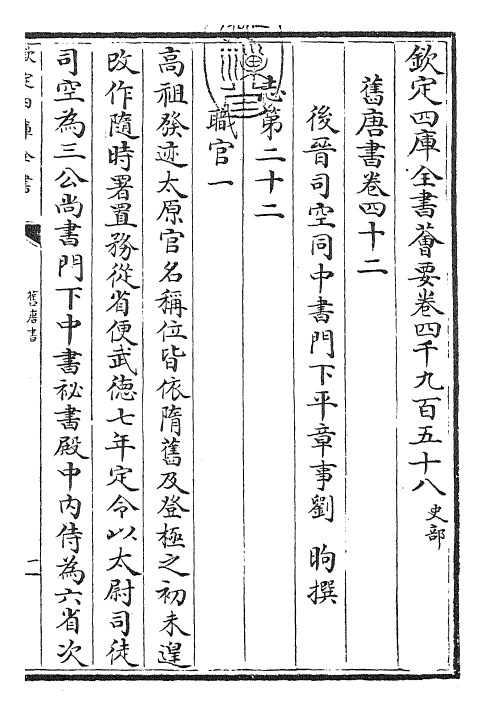 欽定四庫全書薈要卷四千九百五十八 史部
舊唐書卷四十二
後晉司空同中書門下平章事劉 昫撰
志第二十二
職官一
高祖發迹太原官名稱位皆依隋舊及登極之初未遑
改作隨時署置務從省便武德七年定令以太尉司徒
司空為三公尚書門下中書祕書殿中內侍為六省次
欽定四庫全書
舊唐書
一